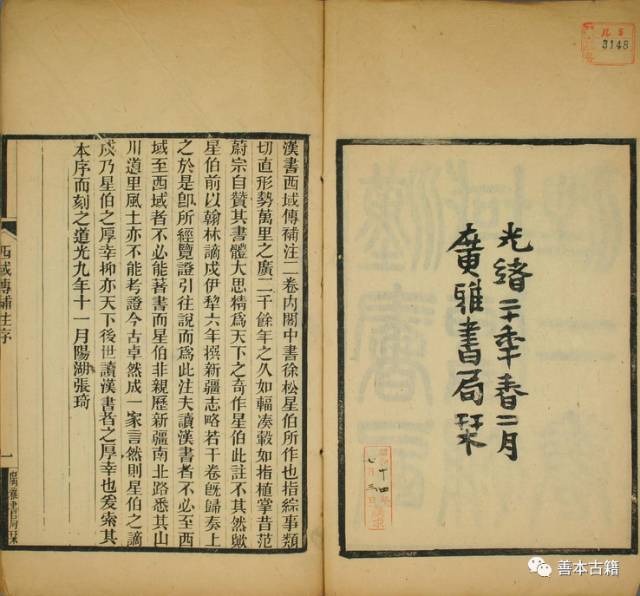 光緒二十年春二月
廣雅書局栞
3148
漢書西域傳補注二卷內閣中書徐松星伯所作也指綜事類
切直形勢萬里之廣二千餘年之久如輻湊轂如指植掌昔范
蔚宗自贊其書體大思精爲天下之奇作星伯此註不其然歟
星伯前以翰林謫戍伊犂六年撰新疆志略若干卷旣歸奏上
之於是卽所經覽證引往說而爲此注夫讀漢書者不必至西
域至西域者不必能著書而星伯非親歷新疆南北路悉其山
川道里風土亦不能考證今古卓然成一家言然則星伯之謫
戍乃星伯之厚幸抑亦天下後世讀漢書者之厚幸也爰索其
本序而刻之道光九年十一月陽湖張琦
西域傳補注序
一
廣雅書局栞
善本古籍